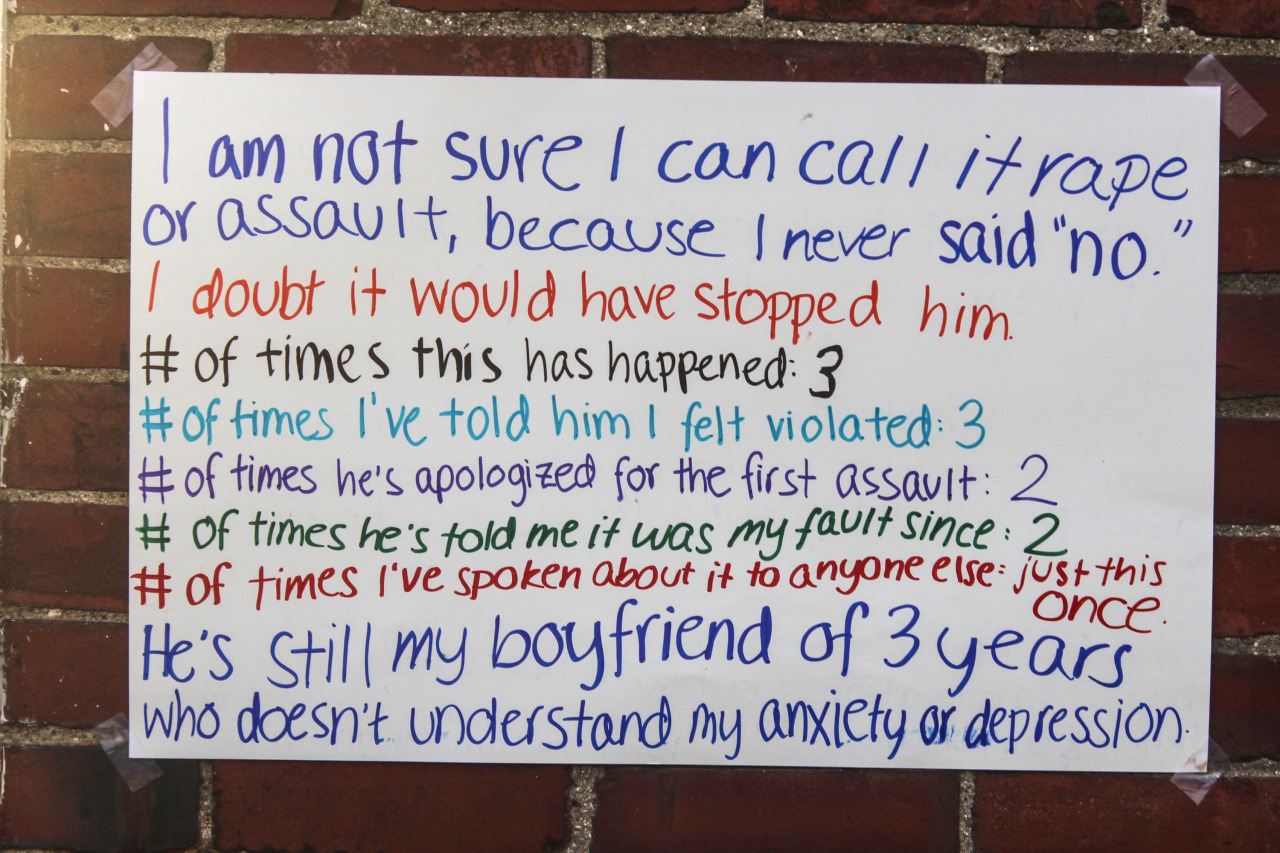 I am not sure I can call it rape
or assault, because I never said "no."
I doubt it would have stopped him.
# of times this has happened: 3
# of times I've told him I felt violated: 3
# of times he's apologized for the first assault: 2
# of times he's told me it was my fault since: 2
# of times I've spoken about it to anyone else: just this
once.
He's still my boyfriend of 3 years
who doesn't understand my anxiety or depression.